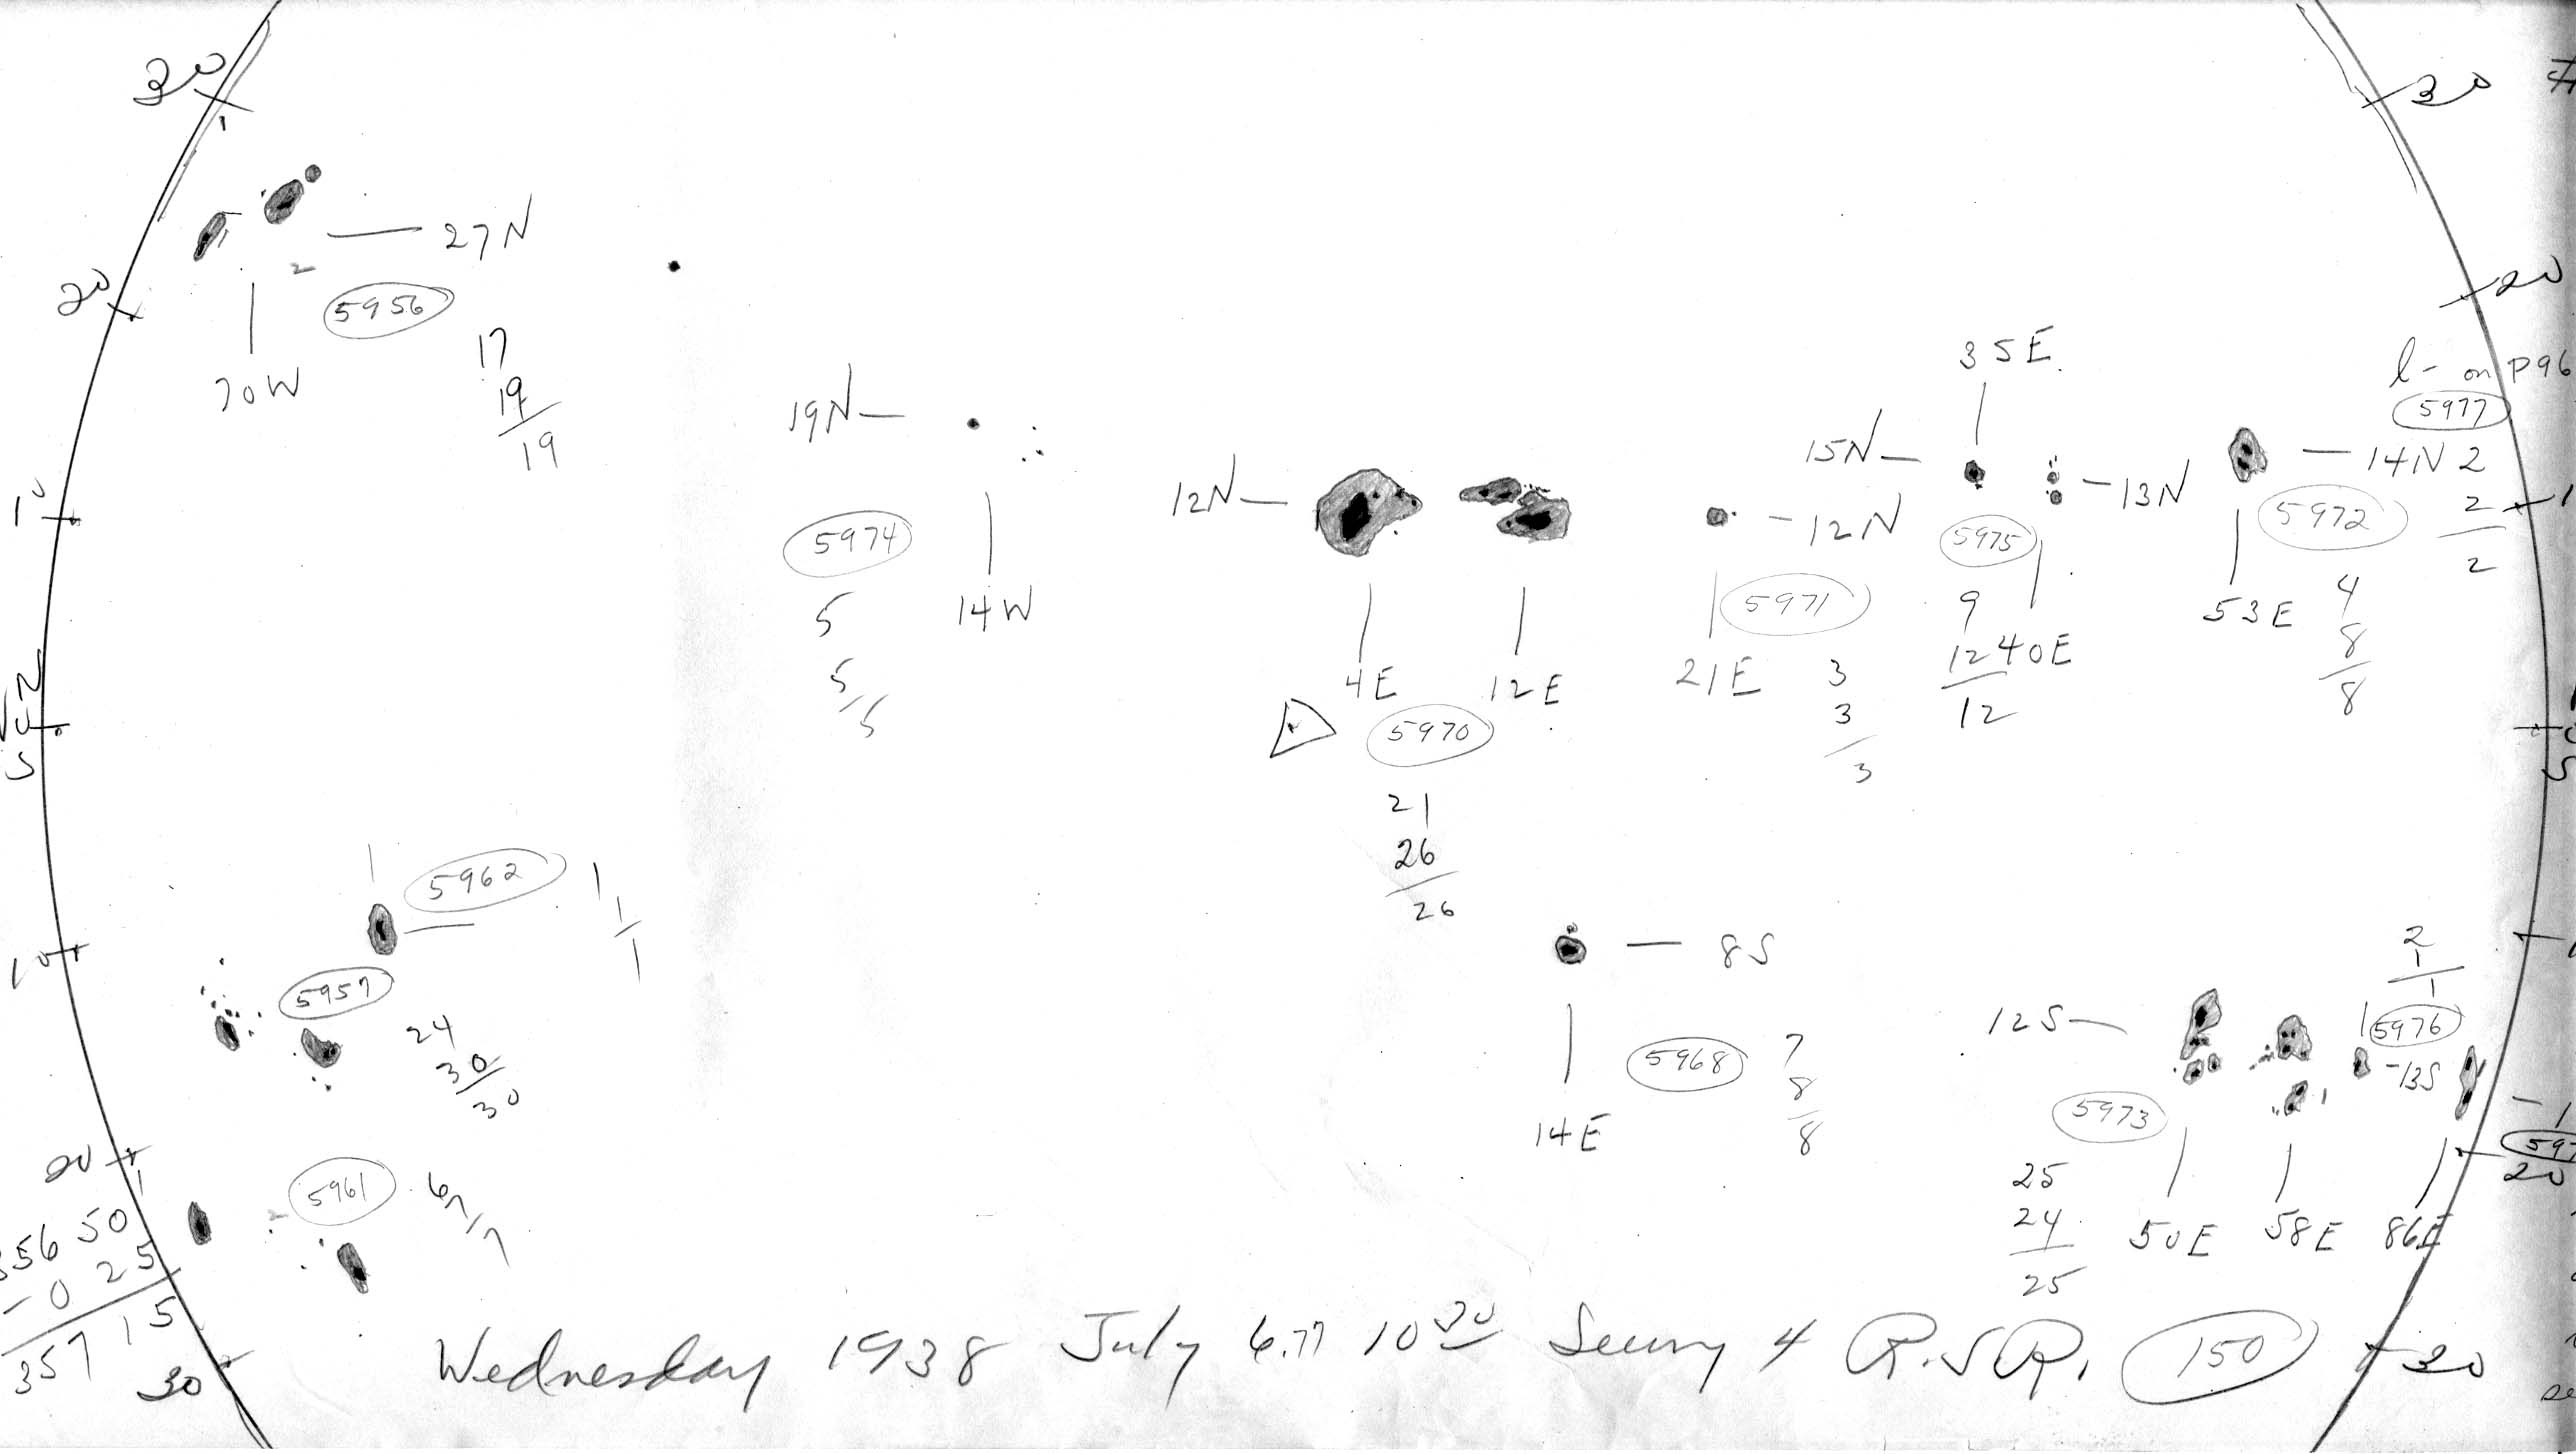 30
30
27N
5956
20
20
70W
17
19
19
35E
l- on P96
5977
19N
15N
14N 2
13N
12N
12N
5972
2
2
10
5974
5975
5971
5
5
5
14W
4E
12E
21E
3
3
3
9
12
12
40E
53E
4
8
8
5970
21
26
26
5962
1
1
1
8S
2
1
1
10
5957
24
30
30
12S
5976
13S
5968
7
8
8
14E
5973
20
5961
6
7
7
20
25
24
25
50E
58E
86E
56 50
-0 25
357 15
30
Wednesday 1938 July 6.77 10 30 Seeing 4 R.S.R. 150
30